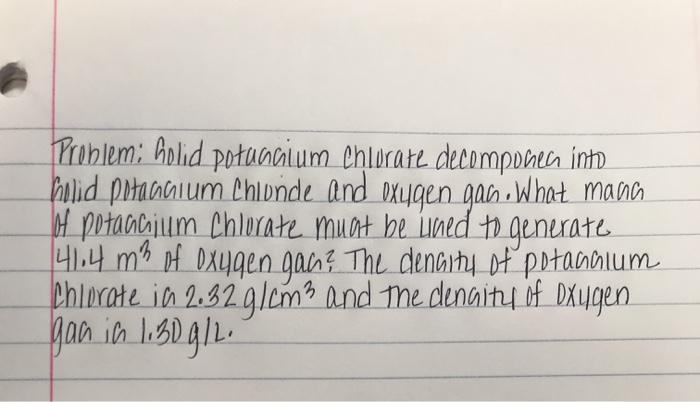 Problem: Solid potassium chlorate decomposes into
solid potassium chloride and oxygen gas. What mass
of potassium chlorate must be used to generate
41.4 m³ of oxygen gas? The density of potassium
chlorate is 2.32 g/cm³ and the density of oxygen
gas is 1.30 g/L.